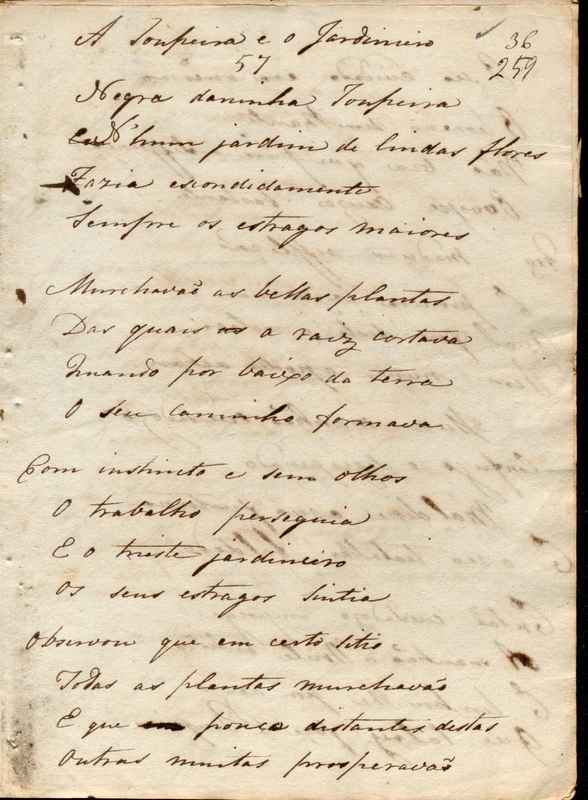 A Toupeira e o Jardineiro
36
57
259
Negra daninha Toupeira
N'hum jardim de lindas flores
Fazia escondidamente
Sempre os estragos maiores
Murchavaõ as bellas plantas
Das quais a raiz cortava
Quando por baixo da terra
O seu caminho formava
Com instincto e sem olhos
O trabalho perseguia
E o triste jardineiro
Os seus estragos sintia
Observou que em certo sitio
Todas as plantas murchavão
E que pouco distantes destas
Outras muitas prosperavaõ